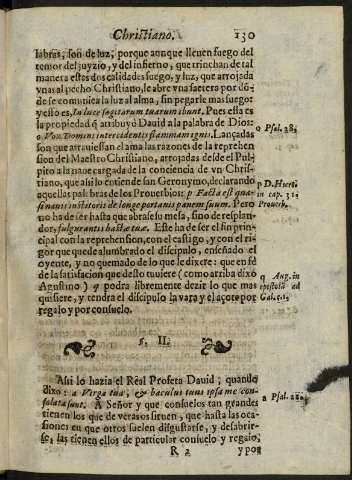 Christiano. 130
labras, son de luz, porque aunque lleuen fuego del
temor del juyzio, y del infierno, que trinchan de tal
manera estos dos calidades fuego, y luz, que arrojada
vnas al pecho Christiano, le abre vna saetera por dõ-
de se comunica la luz al alma, sin pegarle mas fuego:
y esto es, In luce sagittarum tuarum ibunt. Pues essa es
la propiedad q̃ atribuyò Dauid a la palabra de Dios:
o Vox Domini intercidentis flammam ignis. Lançadas
o Psal. 28.
son que atrauiessan el alma las razones de la reprehen
sion del Maestro Christiano, arrojadas desde el Pul-
pito a la naue cargada de la conciencia de vn Christiano,
que assi lo entiende san Geronymo, declarando
aquellas palabras de los Prouerbios: p Facta est qua-
si nauis institoris de longe portans panem suum. Pero
p D. Hier.
in cap. 31.
Prouerb.
no ha de ser hasta que abrase su mesa, sino de resplan-
dor, fulgurantis hastæ tuæ. Este ha de ser el fin prin-
cipal con la reprehension, con el castigo, y con el ri-
gor que quede alumbrado el discipulo, enseñado el
oyente, y no quemado de lo que le dixere: que en fè
de la satisfacion que desto tuuiere (como arriba dixo
Agustino) q podra libremente dezir lo que mas
q Aug. in
epistola ad
Gal. c. 1.
quisiere, y tendra el discipulo la vara y el açote por
regalo y por consuelo.
§. II.
Asi lo hazia el Real Profeta Dauid, quando
dixo: a Virga tua, & baculus tuus ipsa me con-
a Psal. 22.
solata sunt. A Señor y que consuelos tan grandes
tienen los que de veras os siruen, que hasta las oca-
siones en que otros suelen disgustarse, y desabrir-
se, las tienen ellos de particular consuelo y regalo,
R 2 y por